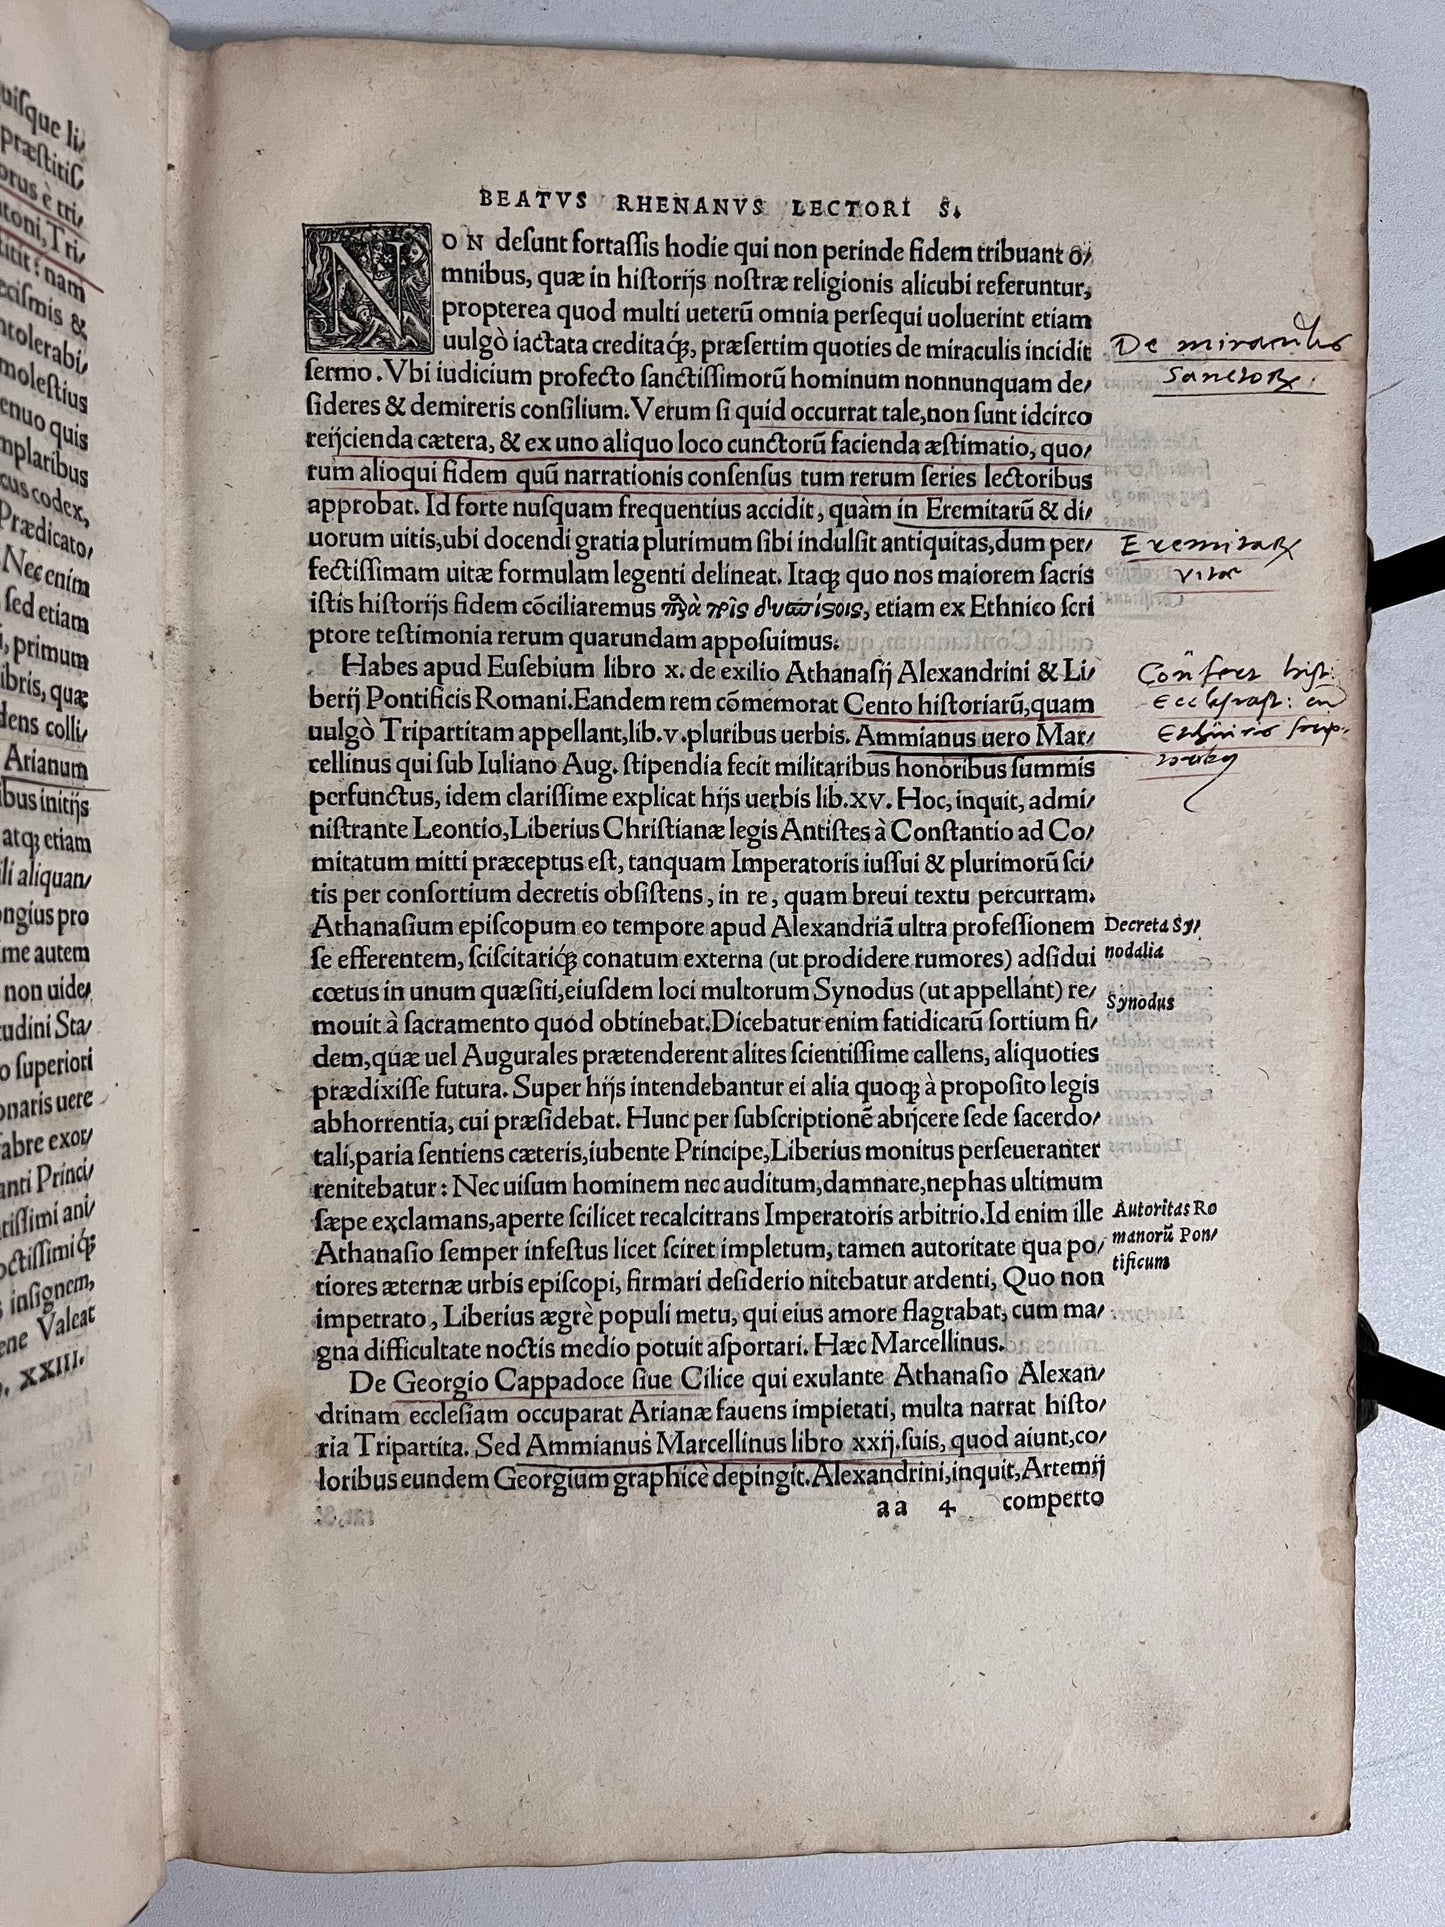 uisque li⸗
præstitis⸗
orus è tri⸗
toni, Tri⸗
tit: nam
ecismis &
ntolerabi⸗
molestius
enuo quis
mplaribus
cus codex,
Prædicato⸗
Nec enim
sed etiam
i, primum
ibris, quæ
dens colli⸗
Arianum
ibus initijs
atq́ etiam
ili aliquan⸗
ongius pro
me autem
non uide⸗
tudini Sta⸗
o superiori
onaris uere
abre exor⸗
anti Princi⸗
tissimi ani⸗
octissimiq́
insignem,
ene Valeat
XXIII.
BEATVS RHENANVS LECTORI S.
NON desunt fortassis hodie qui non perinde fidem tribuant o⸗
mnibus, quæ in historijs nostræ religionis alicubi referuntur,
propterea quod multi ueterū omnia persequi uoluerint etiam
uulgò iactata creditaq́, præsertim quoties de miraculis incidit
sermo. Vbi iudicium profecto sanctissimorū hominum nonnunquam de⸗
sideres & demireris consilium. Verum si quid occurrat tale, non sunt idcirco
reijcienda cætera, & ex uno aliquo loco cunctorū facienda æstimatio, quo⸗
rum alioqui fidem quū narrationis consensus tum rerum series lectoribus
approbat. Id forte nusquam frequentius accidit, quàm in Eremitarū & di⸗
uorum uitis, ubi docendi gratia plurimum sibi indulsit antiquitas, dum per⸗
fectissimam uitæ formulam legenti delineat. Itaq́ quo nos maiorem sacris
istis historijs fidem cōciliaremus παρὰ τοῖς δυσπίστοις, etiam ex Ethnico scri
ptore testimonia rerum quarundam apposuimus.
Habes apud Eusebium libro x. de exilio Athanasij Alexandrini & Li⸗
berij Pontificis Romani. Eandem rem cōmemorat Cento historiarū, quam
uulgò Tripartitam appellant, lib. v. pluribus uerbis. Ammianus uero Mar⸗
cellinus qui sub Iuliano Aug. stipendia fecit militaribus honoribus summis
perfunctus, idem clarissime explicat hijs uerbis lib. xv. Hoc, inquit, admi⸗
nistrante Leontio, Liberius Christianæ legis Antistes à Constantio ad Co⸗
mitatum mitti præceptus est, tanquam Imperatoris iussui & plurimorū sci⸗
tis per consortium decretis obsistens, in re, quam breui textu percurram.
Athanasium episcopum eo tempore apud Alexandriā ultra professionem
se efferentem, sciscitariq́ conatum externa (ut prodidere rumores) adsidui
cœtus in unum quæsiti, eiusdem loci multorum Synodus (ut appellant) re⸗
mouit à sacramento quod obtinebat. Dicebatur enim fatidicarū sortium fi⸗
dem, quæ uel Augurales prætenderent alites scientissime callens, aliquoties
prædixisse futura. Super hijs intendebantur ei alia quoq́ à proposito legis
abhorrentia, cui præsidebat. Hunc per subscriptionē abijcere sede sacerdo⸗
tali, paria sentiens cæteris, iubente Principe, Liberius monitus perseueranter
renitebatur: Nec uisum hominem nec auditum, damnare, nephas ultimum
sæpe exclamans, aperte scilicet recalcitrans Imperatoris arbitrio. Id enim ille
Athanasio semper infestus licet sciret impletum, tamen autoritate qua po⸗
tiores æternæ urbis episcopi, firmari desiderio nitebatur ardenti, Quo non
impetrato, Liberius ægrè populi metu, qui eius amore flagrabat, cum ma⸗
gna difficultate noctis medio potuit asportari. Hæc Marcellinus.
De Georgio Cappadoce siue Cilice qui exulante Athanasio Alexan⸗
drinam ecclesiam occuparat Arianæ fauens impietati, multa narrat histo⸗
ria Tripartita. Sed Ammianus Marcellinus libro xxij. suis, quod aiunt, co⸗
loribus eundem Georgium graphicè depingit. Alexandrini, inquit, Artemij
aa 4 comperto
De miraculis
Sanctorꝝ.
Eremitarꝝ
vitae
Decreta Sy⸗
nodalia
Synodus
Autoritas Ro
manorū Pon⸗
tificum